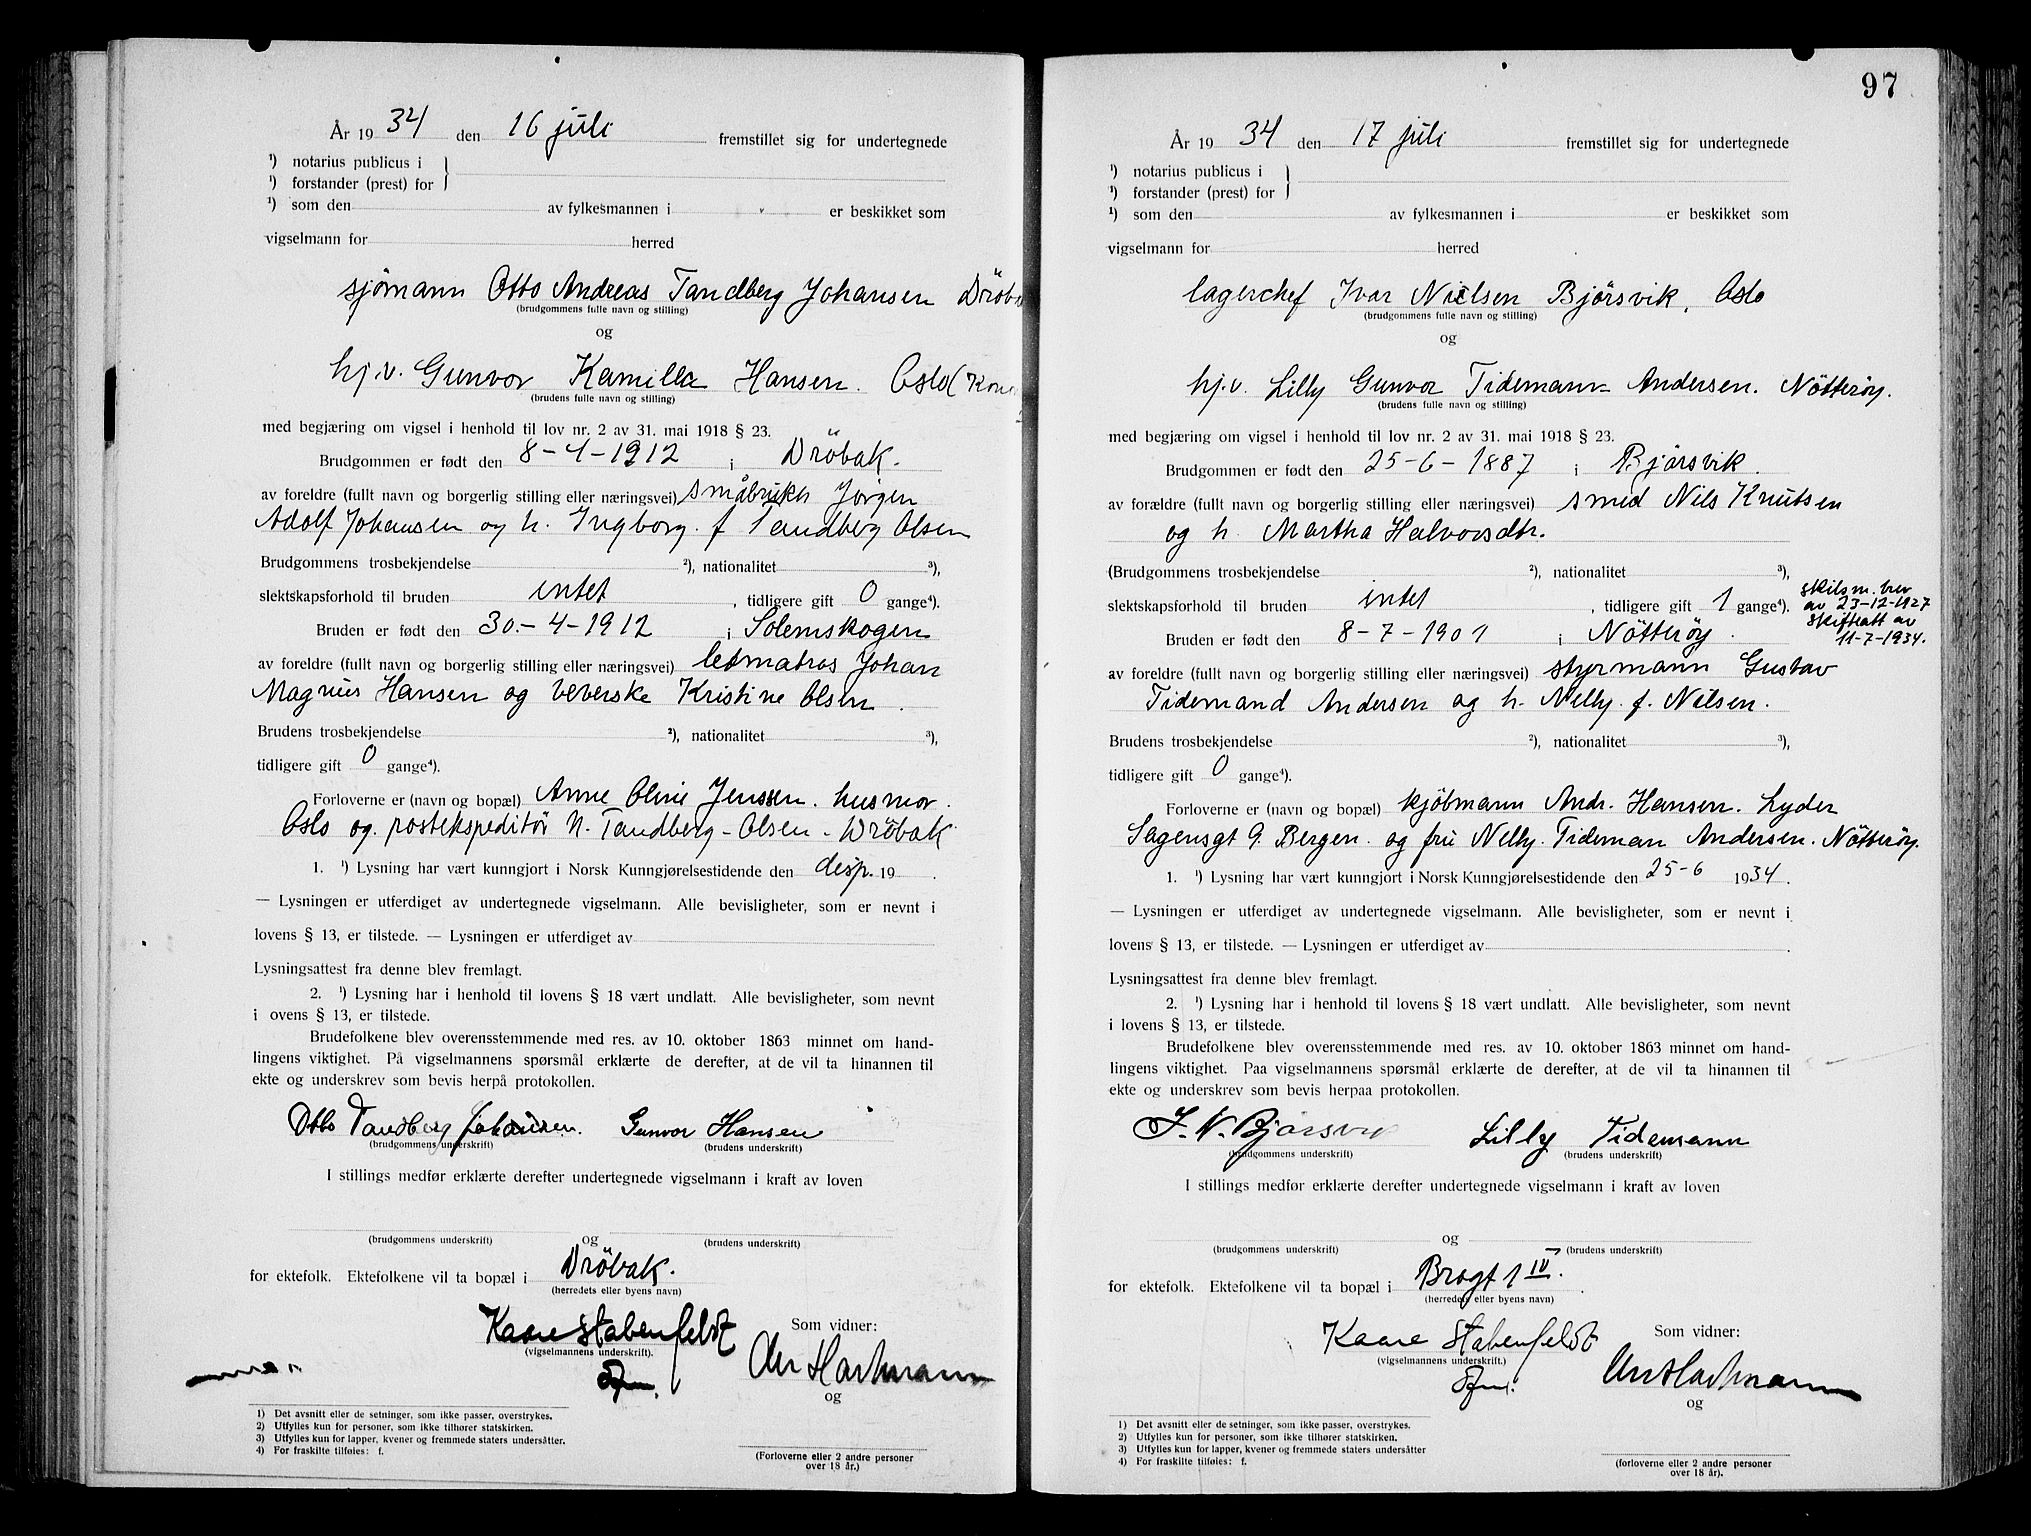 År 1934 den 16 juli fremstillet sig for undertegnede
¹) notarius publicus i
¹) forstander (prest) for
¹) som den av fylkesmannen i er beskikket som
vigselmann for herred
sjømann Otto Andreas Tandberg Johansen Dröba
(brudgommens fulle navn og stilling)
og
hj.v. Gunvor Kamilla Hansen. Oslo (Kone
(brudens fulle navn og stilling)
med begjæring om vigsel i henhold til lov nr. 2 av 31. mai 1918 § 23.
Brudgommen er født den 8-4-1912 i Dröbak.
av foreldre (fullt navn og borgerlig stilling eller næringsvei) småbruker Jörgen
Adolf Johansen og h. Ingborg. f Tandberg Olsen
Brudgommens trosbekjendelse ²), nationalitet ³),
slektskapsforhold til bruden intet, tidligere gift 0 gange⁴).
Bruden er født den 30.-4-1912 i Solemskogen
av foreldre (fullt navn og borgerlig stilling eller næringsvei) letmatros Johan
Magnus Hansen og veverske Kristine Olsen.
Brudens trosbekjendelse ²), nationalitet ³),
tidligere gift 0 gange⁴).
Forloverne er (navn og bopæl) Anne Oline Jenssen. husmor.
Oslo og. postekspeditör N. Tandberg-Olsen - Dröbak
1. ¹) Lysning har vært kunngjort i Norsk Kunngjørelsestidende den desp. 19 .
— Lysningen er utferdiget av undertegnede vigselmann. Alle bevisligheter, som er nevnt i
lovens § 13, er tilstede. — Lysningen er utferdiget av
Lysningsattest fra denne blev fremlagt.
2. ¹) Lysning har i henhold til lovens § 18 vært undlatt. Alle bevisligheter, som nevnt
i ovens § 13, er tilstede.
Brudefolkene blev overensstemmende med res. av 10. oktober 1863 minnet om hand-
lingens viktighet. På vigselmannens spørsmål erklærte de derefter, at de vil ta hinannen til
ekte og underskrev som bevis herpå protokollen.
Otto Tandberg Johansen. Gunvor Hansen
(brudgommens underskrift) (brudens underskrift)
I stillings medfør erklærte derefter undertegnede vigselmann i kraft av loven
og
(brudgommens underskrift) (brudens underskrift)
for ektefolk. Ektefolkene vil ta bopæl i Dröbak.
(herredets eller byens navn)
Kaare Stabenfeldt Som vidner:
(vigselmannens underskrift).
Hartmann
og
1) Det avsnitt eller de setninger, som ikke passer, overstrykes.
2) Utfylles kun for personer, som ikke tilhører statskirken.
3) Utfylles kun for lapper, kvener og fremmede staters undersåtter.
4) For fraskilte tilføies: f.
(Forloverne eller 2 andre personer
over 18 år.)
97
År 1934 den 17 juli fremstillet sig for undertegnede
¹) notarius publicus i
¹) forstander (prest) for
¹) som den av fylkesmannen i er beskikket som
vigselmann for herred
lagerchef Ivar Nielsen Bjørsvik, Oslo
(brudgommens fulle navn og stilling)
og
hj.v. Lilly Gunvor Tidemann Andersen. Nötteröy.
(brudens fulle navn og stilling)
med begjæring om vigsel i henhold til lov nr. 2 av 31. mai 1918 § 23.
Brudgommen er født den 25-6-1887 i Bjørsvik.
av forældre (fullt navn og borgerlig stilling eller næringsvei) smed Nils Knutsen
og h. Martha Halvorsdtr.
(Brudgommens trosbekjendelse ²), nationalitet ³),
slektskapsforhold til bruden intet, tidligere gift 1 gange⁴). skilsm. brev
av 23-12-1927
skifteatt av
11-7-1934.
Bruden er født den 8-7-1901 i Nötteröy.
av foreldre (fullt navn og borgerlig stilling eller næringsvei) styrmann Gustav
Tidemand Andersen og h. Nelly. f. Nilsen.
Brudens trosbekjendelse ²), nationalitet ³),
tidligere gift 0 gange⁴).
Forloverne er (navn og bopæl) kjöbmann Andr. Hansen. Lyder
Sagensgt 9. Bergen. og fru Nelly. Tideman Andersen. Nötteröy.
1. ¹) Lysning har vært kunngjort i Norsk Kunngjørelsestidende den 25-6 1934.
— Lysningen er utferdiget av undertegnede vigselmann. Alle bevisligheter, som er nevnt i
lovens § 13, er tilstede. — Lysningen er utferdiget av
Lysningsattest fra denne blev fremlagt.
2. ¹) Lysning har i henhold til lovens § 18 vært undlatt. Alle bevisligheter, som nevnt
i lovens § 13, er tilstede.
Brudefolkene blev overensstemmende med res. av 10. oktober 1863 minnet om hand-
lingens viktighet. Paa vigselmannens spørsmål erklærte de derefter, at de vil ta hinannen til
ekte og underskrev som bevis herpaa protokollen.
I. N. Bjørsvik Lilly Tidemann
(brudgommens underskrift) (brudens underskrift)
I stillings medfør erklærte derefter undertegnede vigselmann i kraft av loven
og
(brudgommens underskrift) (brudens underskrift)
for ektefolk. Ektefolkene vil ta bopæl i Brogt 1 IV.
(herredets eller byens navn)
Kaare Stabenfeldt Som vidner:
(vigselmannens underskrift.)
Hartmann
og
1) Det avsnitt eller de setninger, som ikke passer, overstrykes.
2) Utfylles kun for personer, som ikke tilhører statskirken.
3) Utfylles kun for lapper, kvener og fremmede staters undersåtter
4) For fraskilte tilføies: f.
(forloverne eller 2 andre personer
over 18 år).